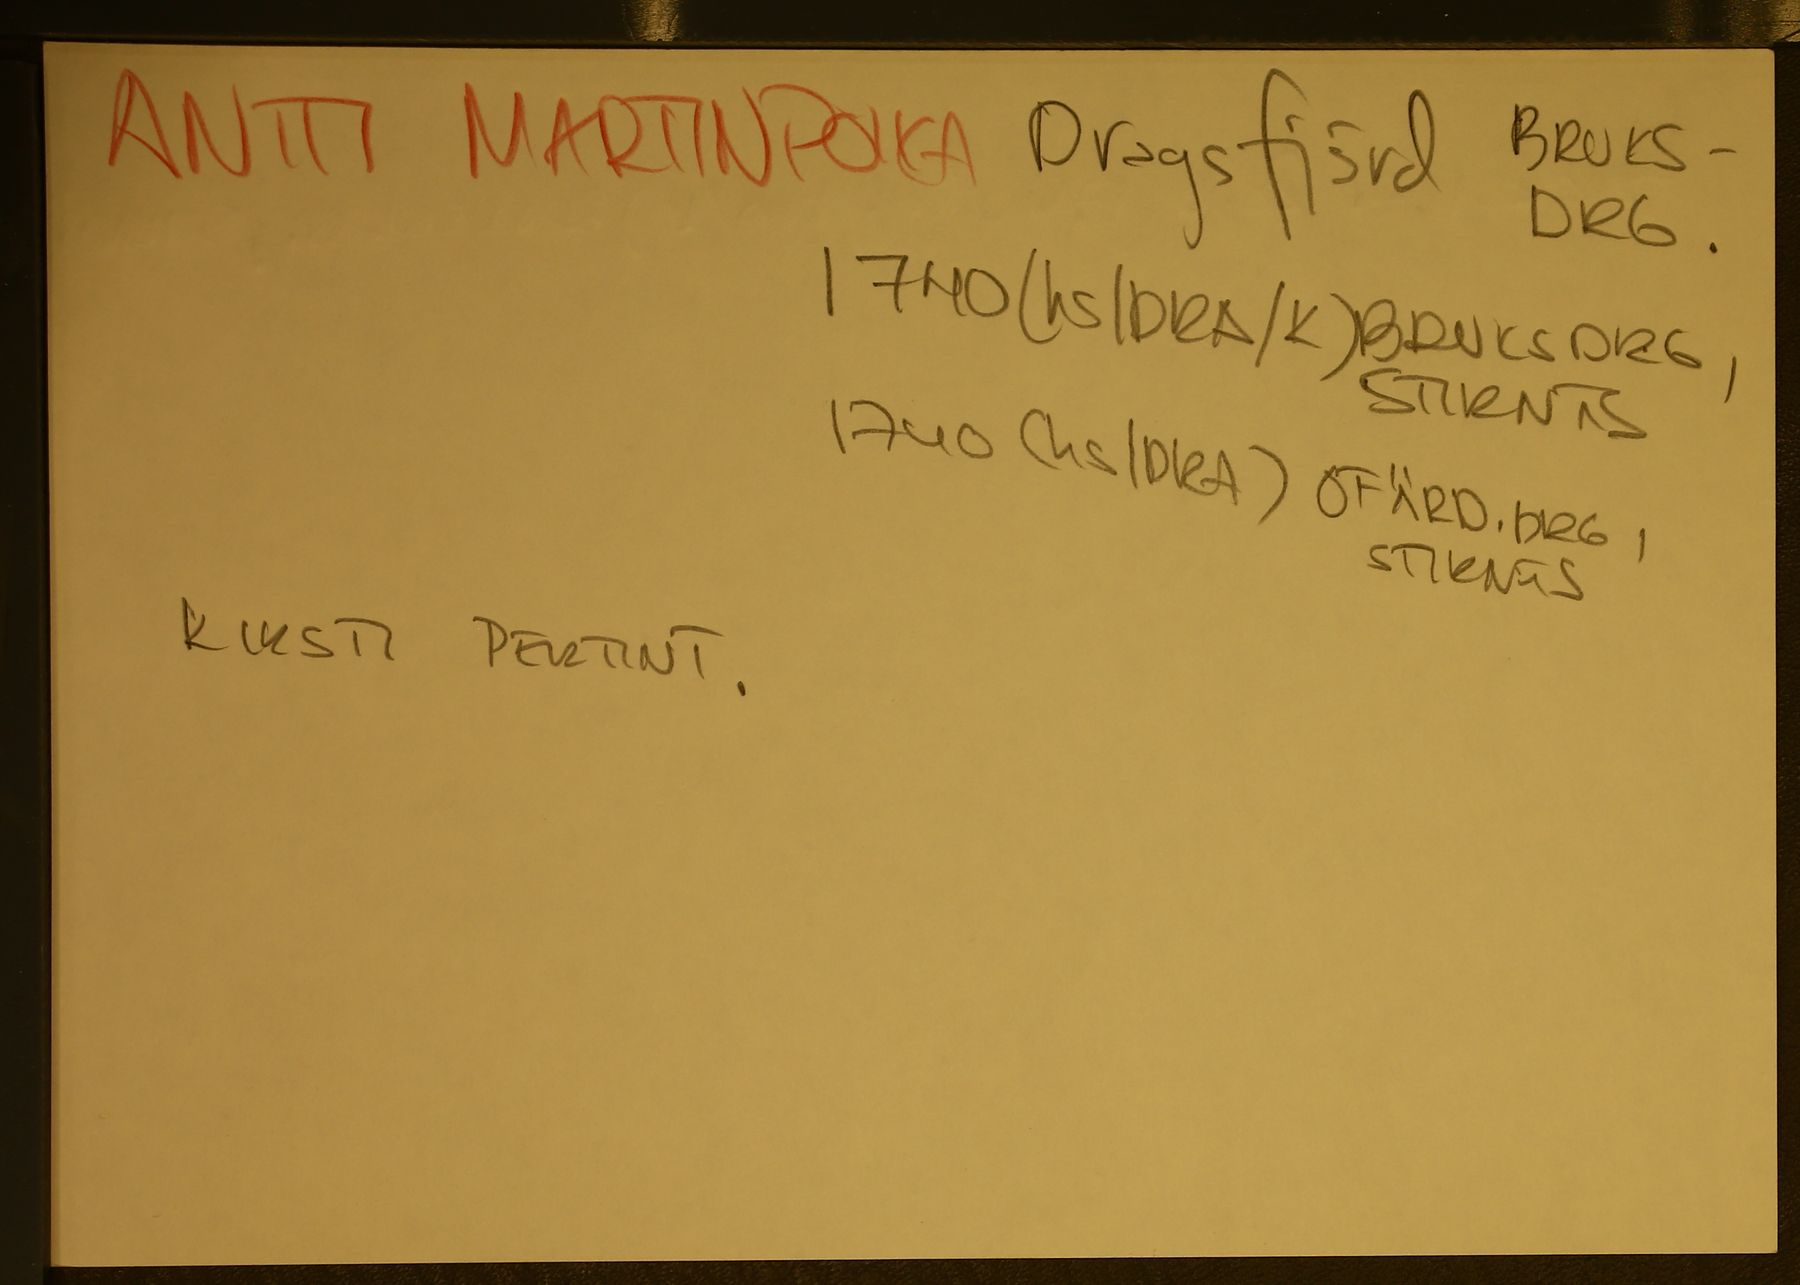 ANTTI MARTINPOIKA Dragsfjärd BRUKS-
DRG.
1740 (hs/DRA/K) BRUKSDRG,
STIRNÄS
1740 (hs/DRA) OFÄRD.DRG,
STIRNÄS
KIRSTI PERTINT.